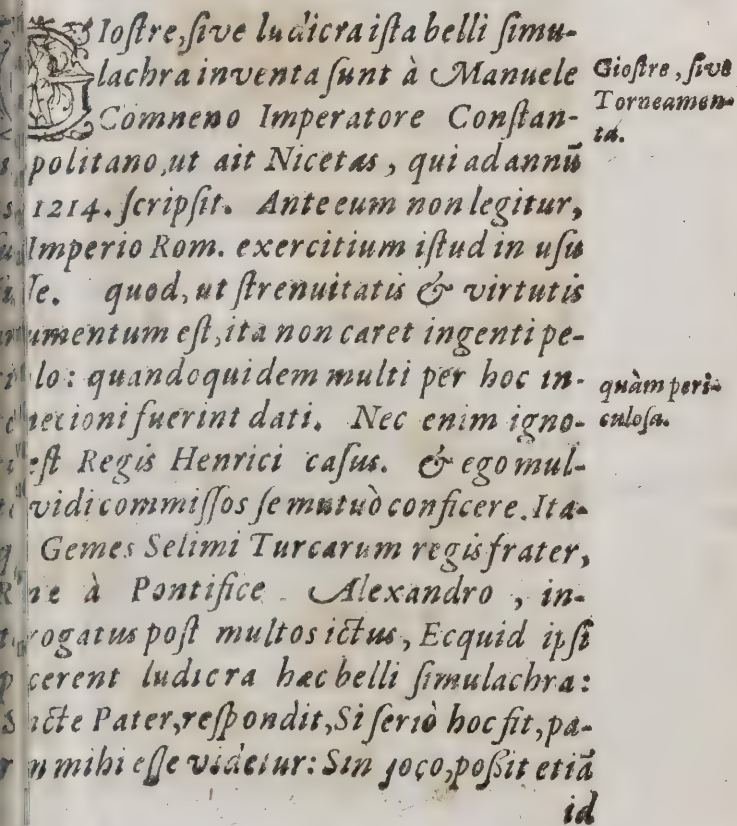 GIoſtre, ſive ludicra iſta belli ſimu-
lachra inventa ſunt à Manuele
Comneno Imperatore Conſtan-
politano, ut ait Nicetas, qui ad annū
1214. ſcripſit. Ante eum non legitur,
Imperio Rom. exercitium iſtud in uſu
quod, ut ſtrenuitatis & virtutis
umentum eſt, ita non caret ingenti pe-
lo: quandoquidem multi per hoc in-
necioni fuerint dati. Nec enim igno-
eſt Regis Henrici caſus. & ego mul-
vidi commiſſos ſe mutuò conficere. Ita-
Gemes Selimi Turcarum regis frater,
à Pontifice Alexandro, in-
rogatus poſt multos ictus, Ecquid ipſi
cerent ludicra hæc belli ſimulachra:
cte Pater, reſpondit, Si ſeriò hoc fit, pa-
mihi eſſe videtur: Sin joco, poßit etiā
id
Gioſtre, ſive
Torneamen-
ta.
quàm peri-
culoſa.